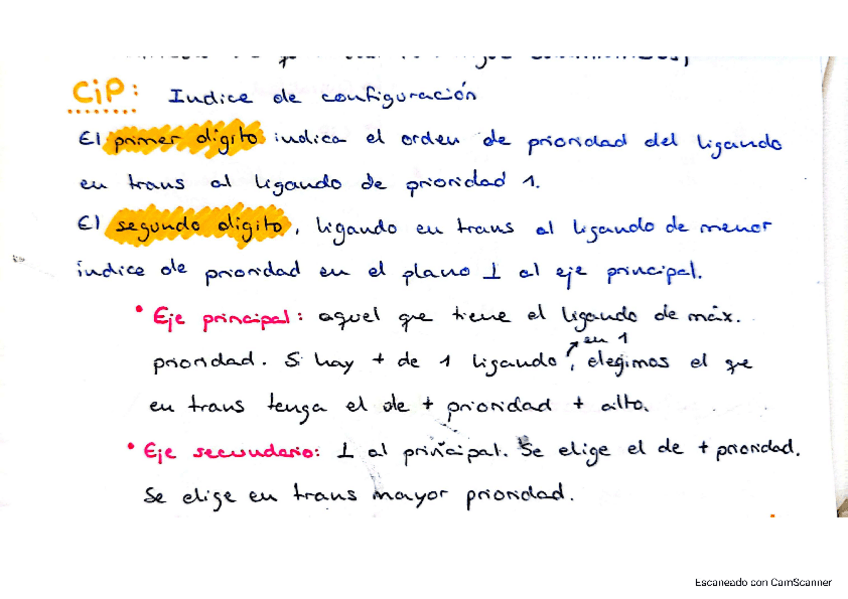 CiP: Indice de configuración
El primer dígito indica el orden de prioridad del ligando
en trans al ligando de prioridad 1.
El segundo dígito, ligando en trans al ligando de menor
índice de prioridad en el plano ⊥ al eje principal.
• Eje principal: aquel que tiene el ligando de máx.
prioridad. Si hay + de 1 ligando en 1, elegimos el que
en trans tenga el de + prioridad + alto.
• Eje secundario: ⊥ al principal. Se elige el de + prioridad.
Se elige en trans mayor prioridad.
Escaneado con CamScanner